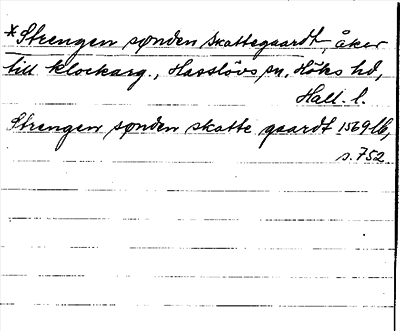 *Strengen sønden skattegaardt, åker
till klockarg., Hasslövs sn, Höks hd,
Hall. l.
Strengen sønden skatte gaardt 1569 lb,
s. 752